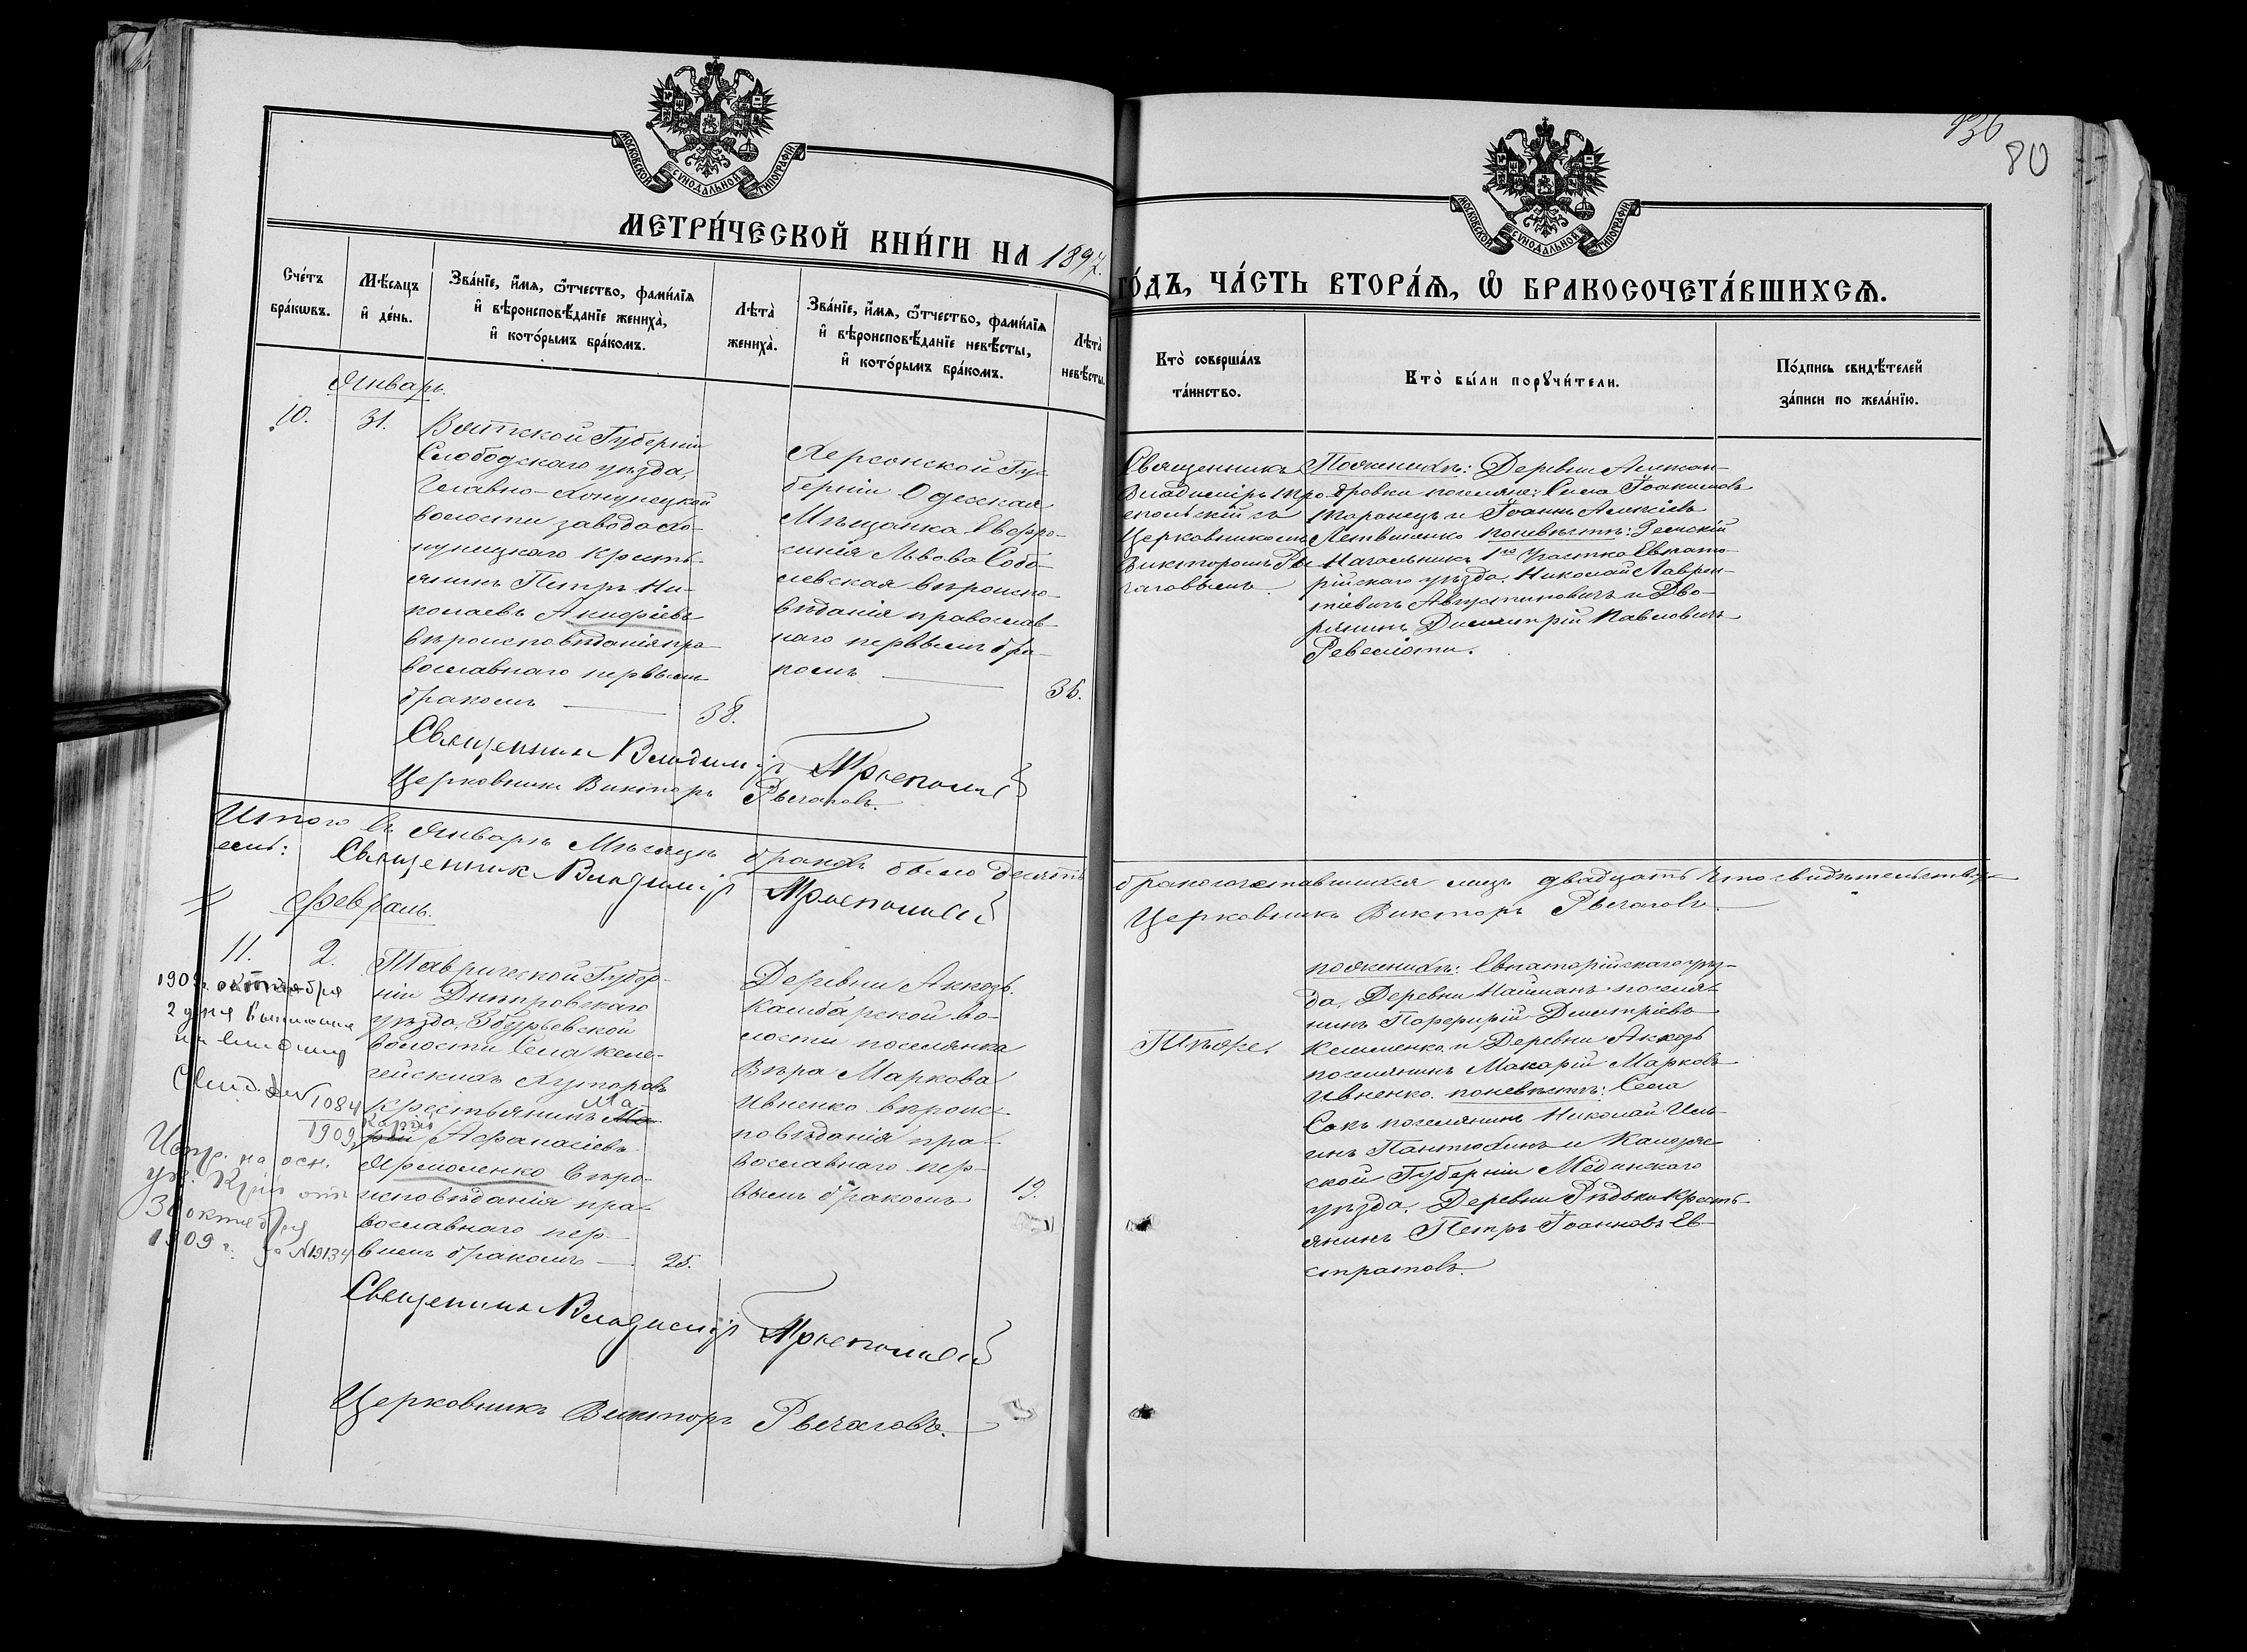 136
80
МОСКОВСКОЙ СУНОДАЛЬНОЙ ТИПОГРАФІИ
МОСКОВСКОЙ СУНОДАЛЬНОЙ ТИПОГРАФІИ
МЕТРИ́ЧЕСКОЙ КНИ́ГИ НА 1897.
ГО́ДЪ, ЧА́СТЬ ВТОРА́Ѧ, Ѽ БРАКОСОЧЕТА́ВШИХСѦ.
Сче́тъ
бра́кѡвъ.
Мѣ́сяцъ
и҆ де́нь.
Зва́нїе, и҆́мѧ, ѻ҆́тчество, фами́лїѧ
и҆ вѣроисповѣ́данїе жениха̀,
и҆ кото́рымъ бра́комъ.
Лѣта̀
жениха̀.
Зва́нїе, и҆́мѧ, ѻ҆́тчество, фами́лїѧ
и҆ вѣроисповѣ́данїе невѣ́сты,
и҆ кото́рымъ бра́комъ.
Лѣта̀
невѣ́сты.
Кто̀ соверша́лъ
та́инство.
Кто̀ бы́ли порꙋчи́тели.
По́дпись свидѣ́телей
за́писи по жела́нїю.
Январь.
10.
31.
Вятской Губерніи
Слободскаго уѣзда,
Главно-Холуницкой
волости завода Хо-
луницкаго кресть-
янинъ Петръ Ни-
колаевъ Анофріевъ
вѣроисповѣданія пра-
вославнаго первымъ
бракомъ
38.
Херсонской Гу-
берніи Одесская
Мѣщанка Евфро-
синія Львова Собо-
левская вѣроиспо-
вѣданія православ-
наго первымъ бра-
комъ
35.
Священникъ
Владиміръ Тро-
епольскій съ
Церковникомъ
Викторомъ Ры-
чаговымъ.
По женихѣ: Деревни Алексан-
дровки поселяне: Савва Іоакимовъ
Таранецъ и Іоаннъ Алексіевъ
Литвиненко по невѣстѣ: Земскій
Начальникъ 1го Участка Евпато-
рійскаго уѣзда. Николай Лаврен-
тіевичъ Августиновичъ и Дво-
рянинъ Димитрій Павловичъ
Ревеліоти.
Священникъ Владиміръ Троепольскій
Церковникъ Викторъ Рычаговъ.
Итого въ Январѣ Мѣсяцѣ браковъ было десять
бракосочетавшихся лицъ двадцать что свидѣтельству-
емъ: Священникъ Владиміръ Троепольскій
Церковникъ Викторъ Рычаговъ
Февраль.
11.
2.
Таврической Губер-
ніи Днѣпровскаго
уѣзда, Збурьевской
волости Села Келе-
гейскихъ Хуторовъ
крестьянинъ Ма-
карій Афанасіевъ
Ярмоленко вѣро-
исповѣданія пра-
вославнаго пер-
вымъ бракомъ
25.
Деревни Аккозъ.
Камбарской во-
лости поселянка
Вѣра Маркова
Ивненко вѣроис-
повѣданія пра-
вославнаго пер-
вымъ бракомъ
19.
Тѣже.
по женихѣ: Евпаторійскаго уѣз-
да, Деревни Найманъ поселя-
нинъ Порфирій Димитріевъ
Клименко и Деревни Аккозъ
поселянинъ Макарій Марковъ
Ивненко. по невѣстѣ: Села
Сакъ поселянинъ Николай Иль-
инъ Пантюхинъ и Калуж-
ской Губерніи Мединскаго
уѣзда, Деревни Рѣдьки кресть-
янинъ Петръ Іоанновъ Ев-
стратовъ.
1909 октября
2 дня
Свид. № 1084
1909
Испр. на осн.
ук. от
30 октября
1909 г. за №19134
Священникъ Владиміръ Троепольскій
Церковникъ Викторъ Рычаговъ.